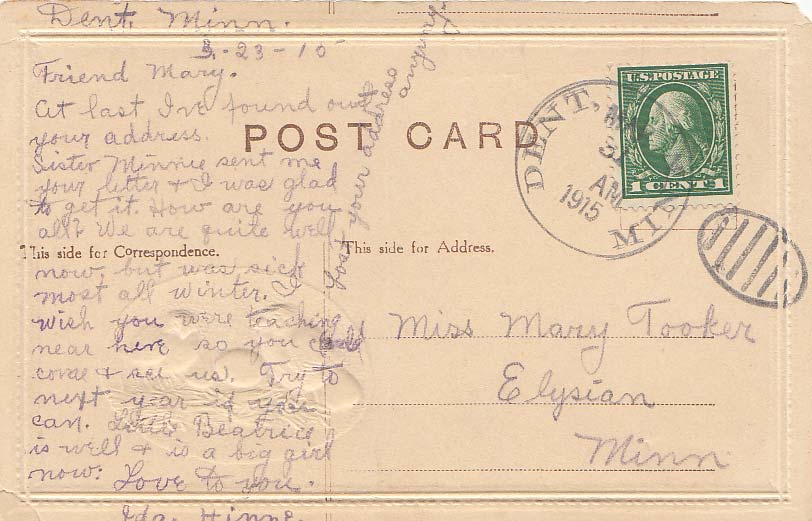 Dent, Minn.
3-23-15
Friend Mary.
At last I've found out
your address.
Sister Minnie sent me
your letter & I was glad
to get it. How are you
all? We are quite well
now, but was sick
most all winter. I
wish you were teaching
near here so you could
come & see us. Try to
next year if you
can. Little Beatrice
is well & is a big girl
now. Love to you.
Ida Hinne.
Lost your address
POST CARD
This side for Correspondence.
This side for Address.
U.S. POSTAGE
1 CENT 1
DENT,
AM
1915
MI
Miss Mary Tooker
Elysian
Minn